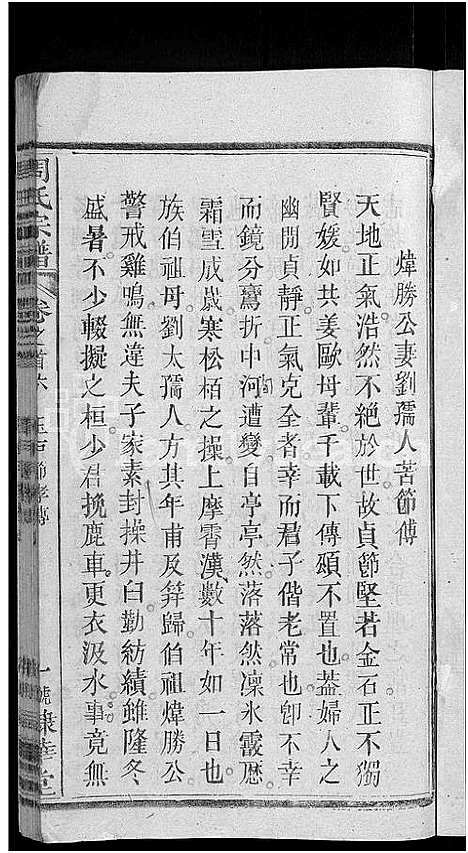 煒勝公妻劉孺人苦節傳
天地正氣浩然不絕於世故貞節堅若金石正不獨
賢媛如共姜歐母輩千載下傳頌不置也蓋婦人之
幽閒貞靜正氣克全者幸而君子偕老常也卽不幸
而鏡分鸞折中河遭變自亭亭然落落然凜氷霰歷
霜雪成嵗寒松栢之操上摩霄漢數十年如一日也
族伯祖母劉太孺人方其年甫及筓歸伯祖煒勝公
警戒雞鳴無違夫子家素封操井臼勤紡績雖隆冬
盛暑不少輟擬之桓少君挽鹿車更衣汲水事竟無
周氏宗譜
卷之首六